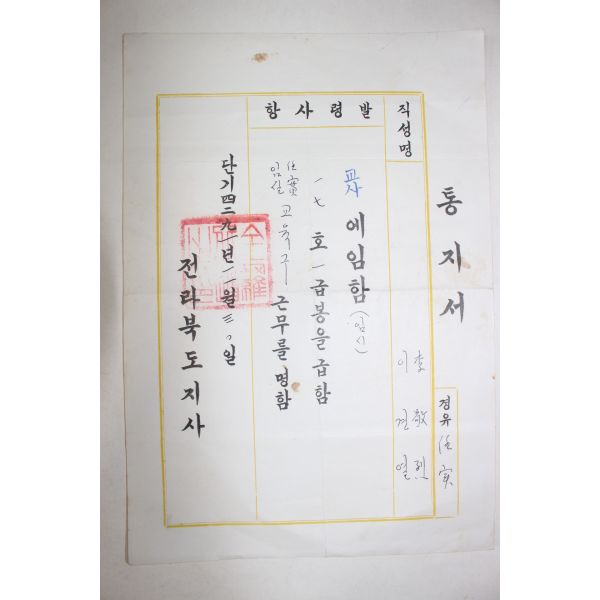 통지서
경유 任実
직성명
李敬烈
이경열
발령사항
교사에임함(임시)
一七호一급봉을급함
任實
임실교육구근무를명함
단기四二九一년一一월三〇일
전라북도지사